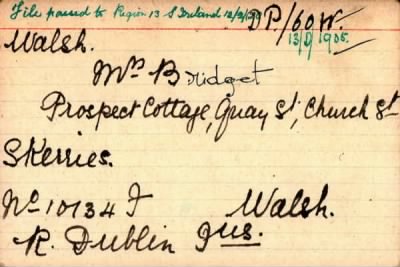 File passed to Region 13 S Ireland 12/9/
DP/60W.
13/9/1905.
Walsh.
Mrs Bridget
Prospect Cottage, Quay St; Church St
Skerries.
No 10134 F Walsh.
R. Dublin Fus.